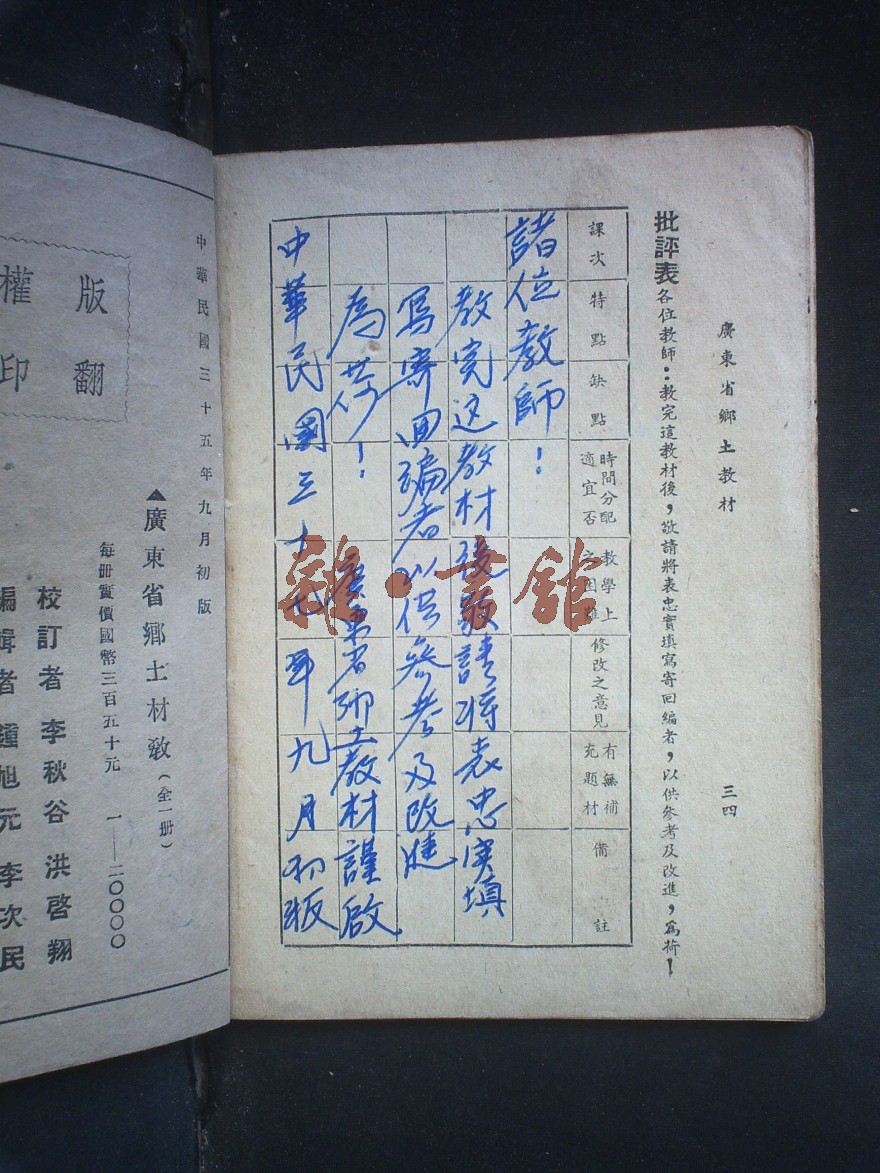 廣東省鄉土教材
三四
批評表 各位教師：教完這教材後，敬請將表忠實填寫寄回編者，以供參考及改進，爲荷！
課次
特點
缺點
時間分配
適宜否
教學上
之困難
修改之意見
有無補
充題材
備註
諸位教師！
教完这教材後敬請将表忠实填
寫寄回编者以供参考及改進
為荷！
廣東省鄉土教材謹啟
中華民國三十七年九月初版
雜·書館
中華民國三十五年九月初版
▲廣東省鄉土材教（全一册）
每册實價國幣三百五十元
一—二〇〇〇〇
校訂者 李秋谷 洪啓翔
編輯者 鍾旭元 李次民
版權
翻印